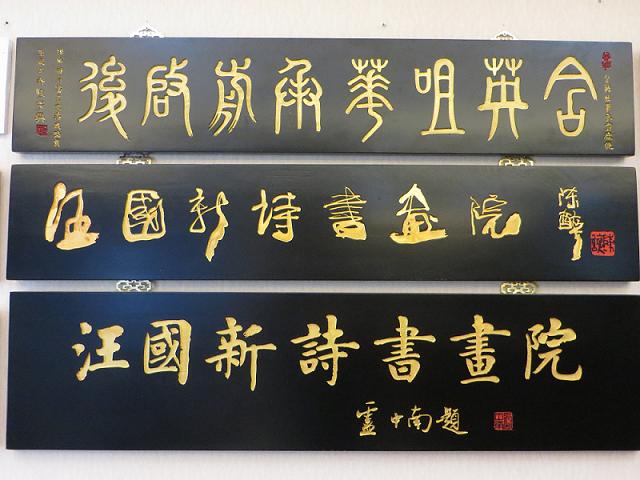 含英咀華承前啓後
汪國新诗書画院
陈醉
汪國新詩書畫院
盧中南題